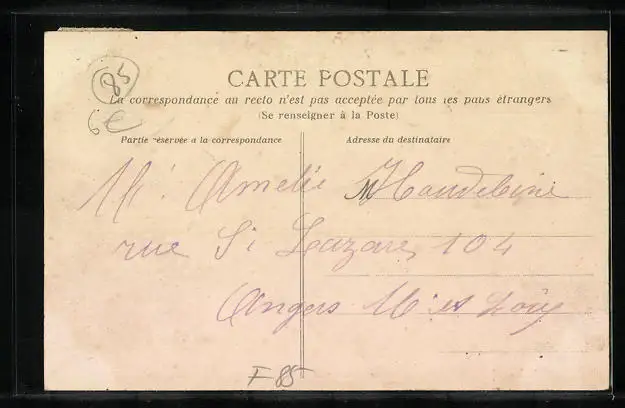 85
6€
CARTE POSTALE
La correspondance au recto n'est pas acceptée par tous les pays étrangers
(Se renseigner à la Poste)
Partie réservée a la correspondance
Adresse du destinataire
Amelie
rue St Lazare, 104
Angers
F 85